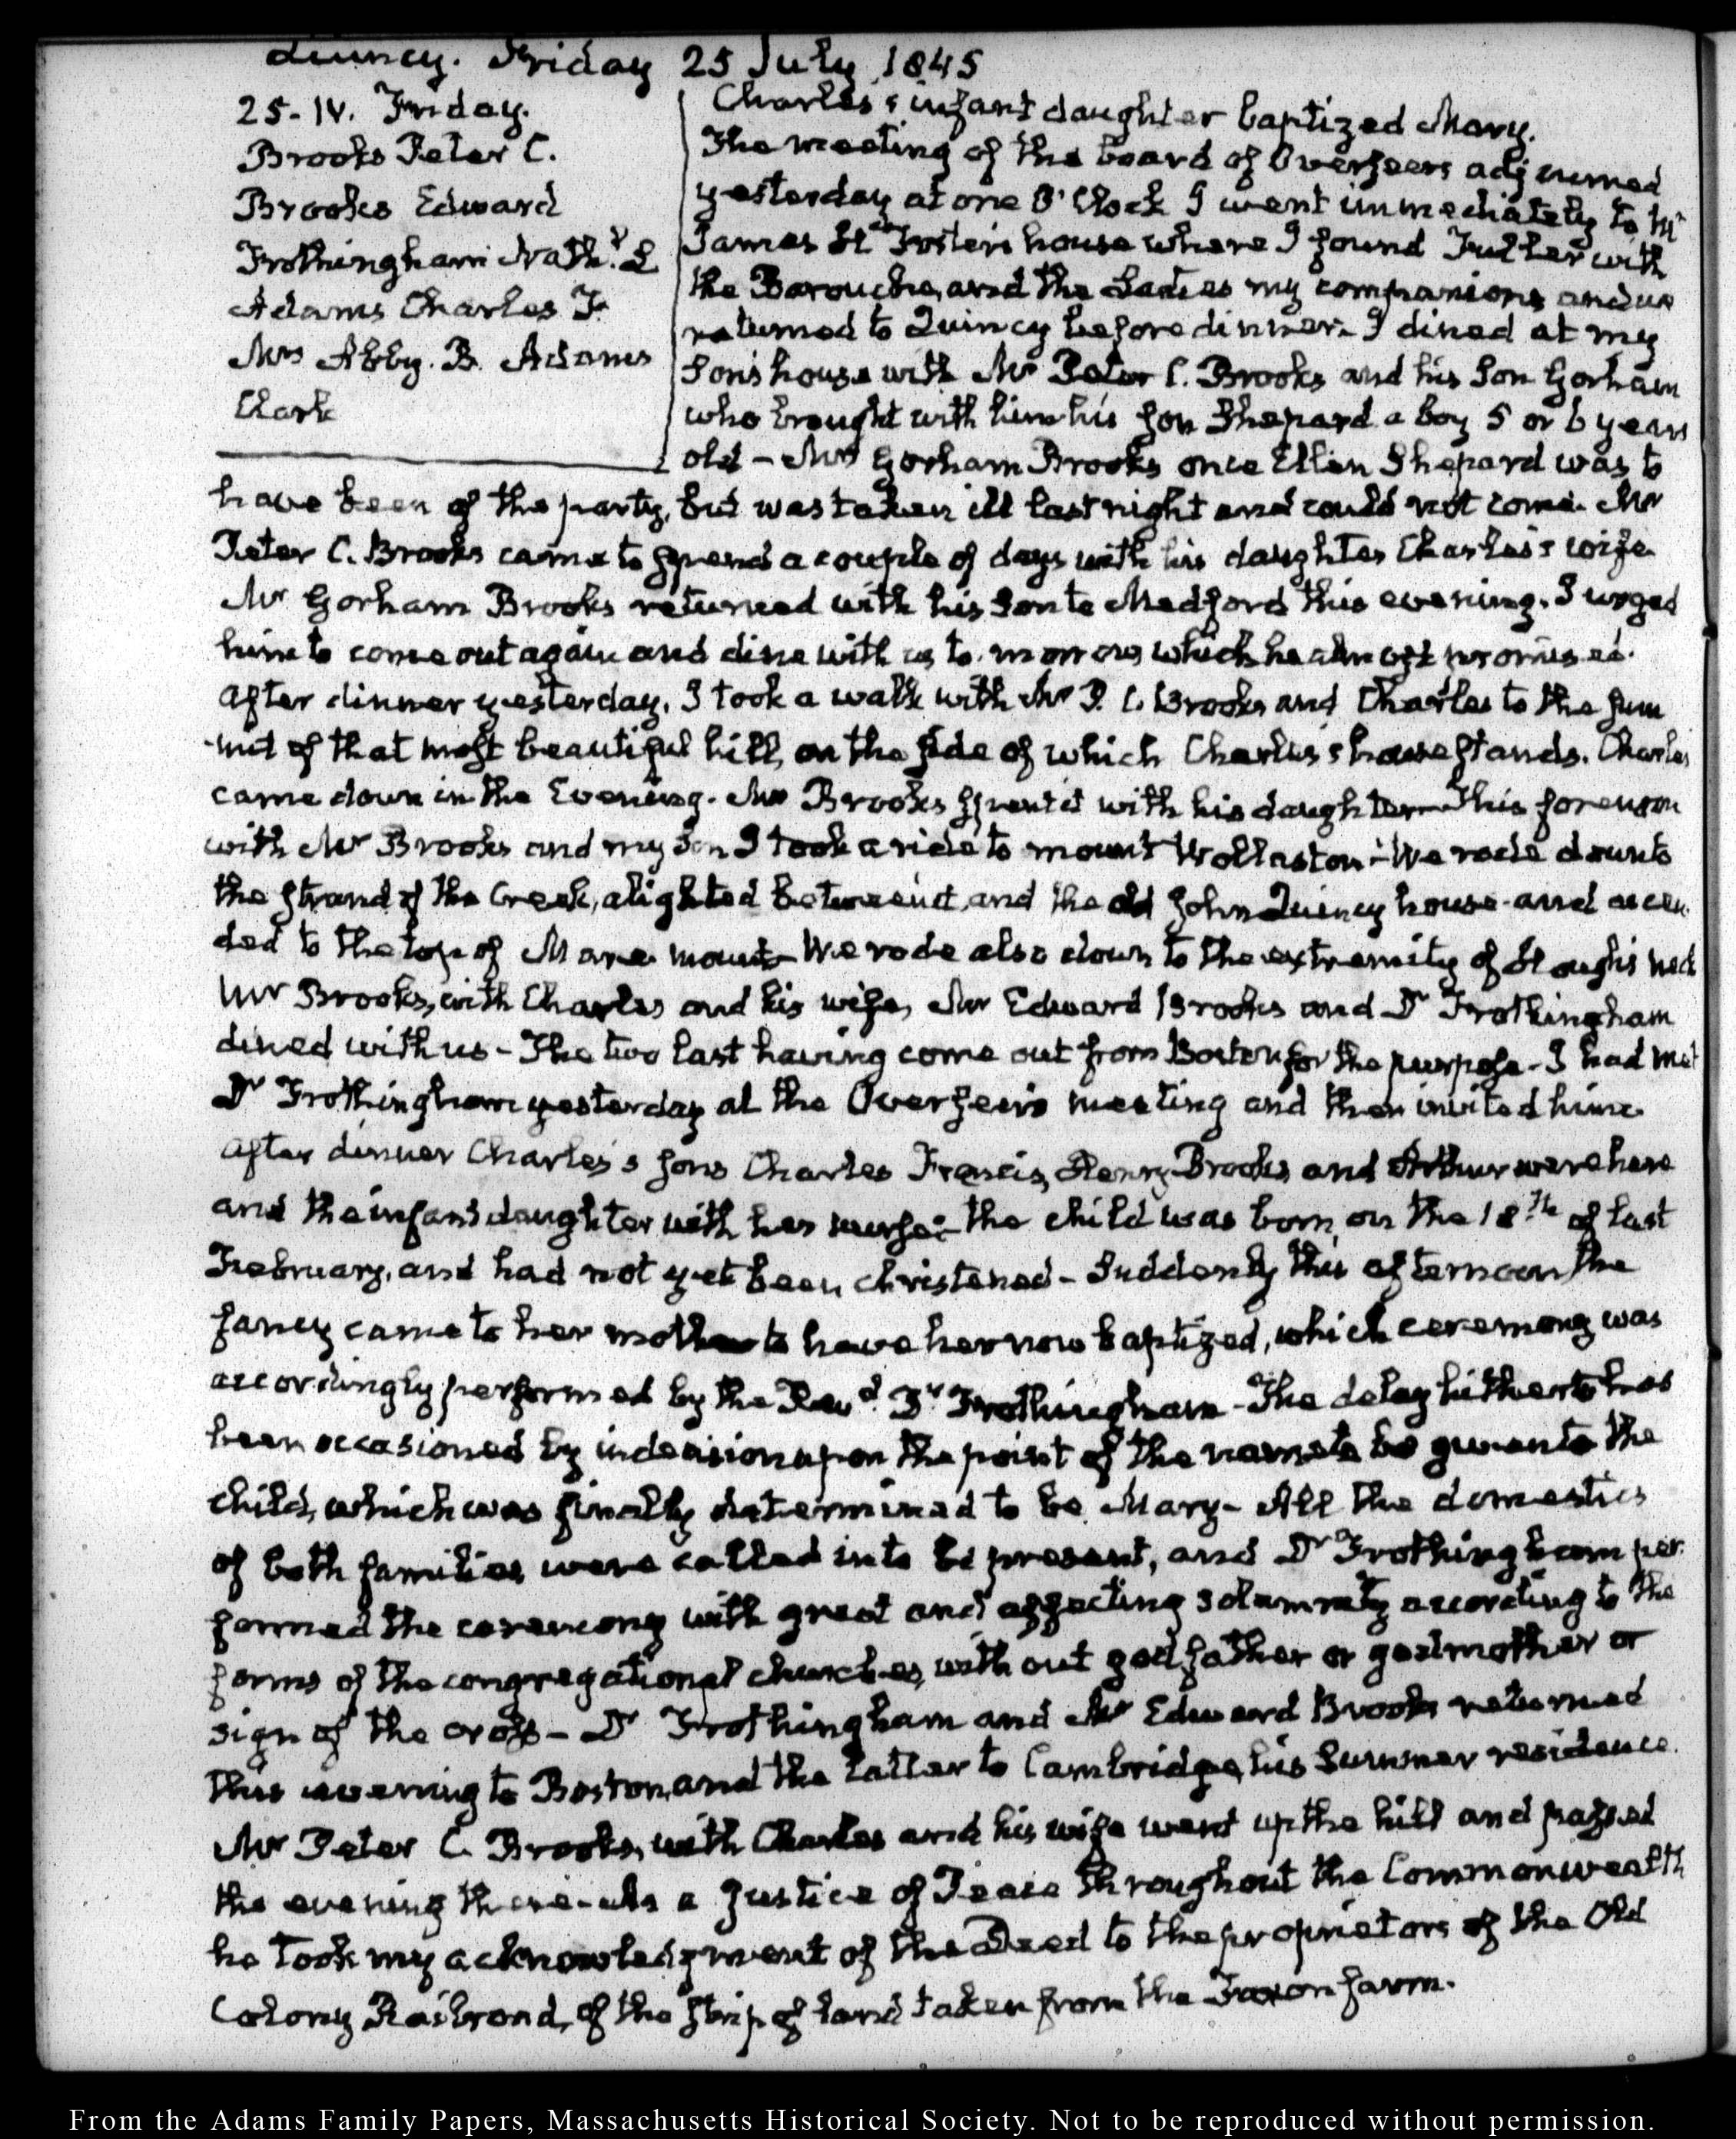 Quincy. Friday 25 July 1845
25. IV. Friday.
Brooks Peter C.
Brooks Edward
Frothingham Nath.l L
Adams Charles F.
Mrs Abby. B. Adams
Clark
Charles's infant daughter baptized Mary.
The meeting of the board of Overseers adjourned
yesterday at one O'Clock I went immediately to Mr
James H Foster's house where I found Futter with
the Barouche, and the Ladies my companions and we
returned to Quincy before dinner. I dined at my
Son's house with Mr Peter C. Brooks and his Son Gorham
who brought with him his son Shepard a boy 5 or 6 years
old – Mrs Gorham Brooks once Ellen Shepard was to
have been of the party, but was taken ill last night and could not come. Mr
Peter C. Brooks came to spend a couple of days with his daughter Charles's wife
Mr Gorham Brooks returned with his Son to Medford this evening. I urged
him to come out again and dine with us to-morrow which he almost promised.
After dinner yesterday, I took a walk with Mr P. C. Brooks and Charles to the sum
mit of that most beautiful hill, on the side of which Charles's house stands. Charles
came down in the Evening. Mr Brooks spent it with his daughter – This forenoon
with Mr Brooks and my Son I took a ride to mount Wollaston – We rode down to
the strand of the Creek, alighted between it, and the old John Quincy house – and ascen
ded to the top of Mare mount – We rode also down to the extremity of Hough's neck
Mr Brooks, with Charles and his wife, Mr Edward Brooks and Dr Frothingham
dined with us – The two last having come out from Boston for the purpose – I had met
Dr Frothingham yesterday at the Overseers meeting and then invited him.
After dinner Charles's sons Charles Francis, Henry Brooks and Arthur were here
and the infant daughter with her nurse – the child was born, on the 18th of last
February, and had not yet been christened – Suddenly this afternoon the
fancy came to her mother to have her now baptized, which ceremony was
accordingly performed by the Revd. Dr Frothingham – The delay hitherto has
been occasioned by indecision upon the point of the name to be given to the
child, which was finally determined to be Mary – All the domestics
of both families were called in to be present, and Dr Frothingham per
formed the ceremony with great and affecting solemnity according to the
forms of the congregational churches, without godfather or godmother or
sign of the cross – Dr Frothingham and Mr Edward Brooks returned
this evening to Boston, and the latter to Cambridge, his Summer residence.
Mr Peter C. Brooks, with Charles and his wife went up the hill and passed
the evening there – As a Justice of Peace throughout the Commonwealth
he took my acknowledgment of the Deed to the proprietors of the Old
Colony Railroad, of the strip of land taken from the Faxon farm.
From the Adams Family Papers, Massachusetts Historical Society. Not to be reproduced without permission.